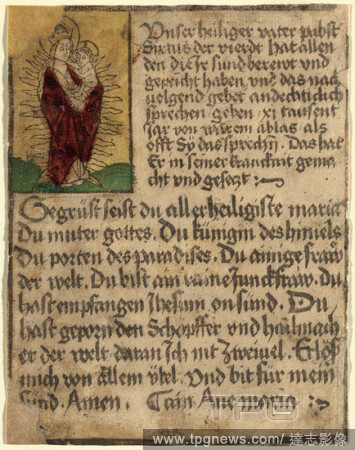 Unser heiliger vater pabst
Sixtus der vierdt hat allen
den die jr sund berewt und
gepeicht haben vnd das nach
uolgend gebet andechticlich
sprechen geben xj tausent
Jar von warem ablas als
offt Sy das sprechn. Das hat
Er in seiner kranckait gema
cht und gesetzt :~
Gegrüst seist du aller heiligiste maria
Du muter gottes. Du künigin des himels
Du porten des paradises. Du ainige fraw
der welt. Du bist ain raine Junckfraw. Du
hast empfangen Jhesum on sund. Du
hast geporn den Schopffer und hailmach
er der welt daran Ich nit zweiuel. Erlöß
mich von allem ubel. Und bit für mein
sünd. Amen. Ain Aue maria :~
www.tpgnews.com/達志影像